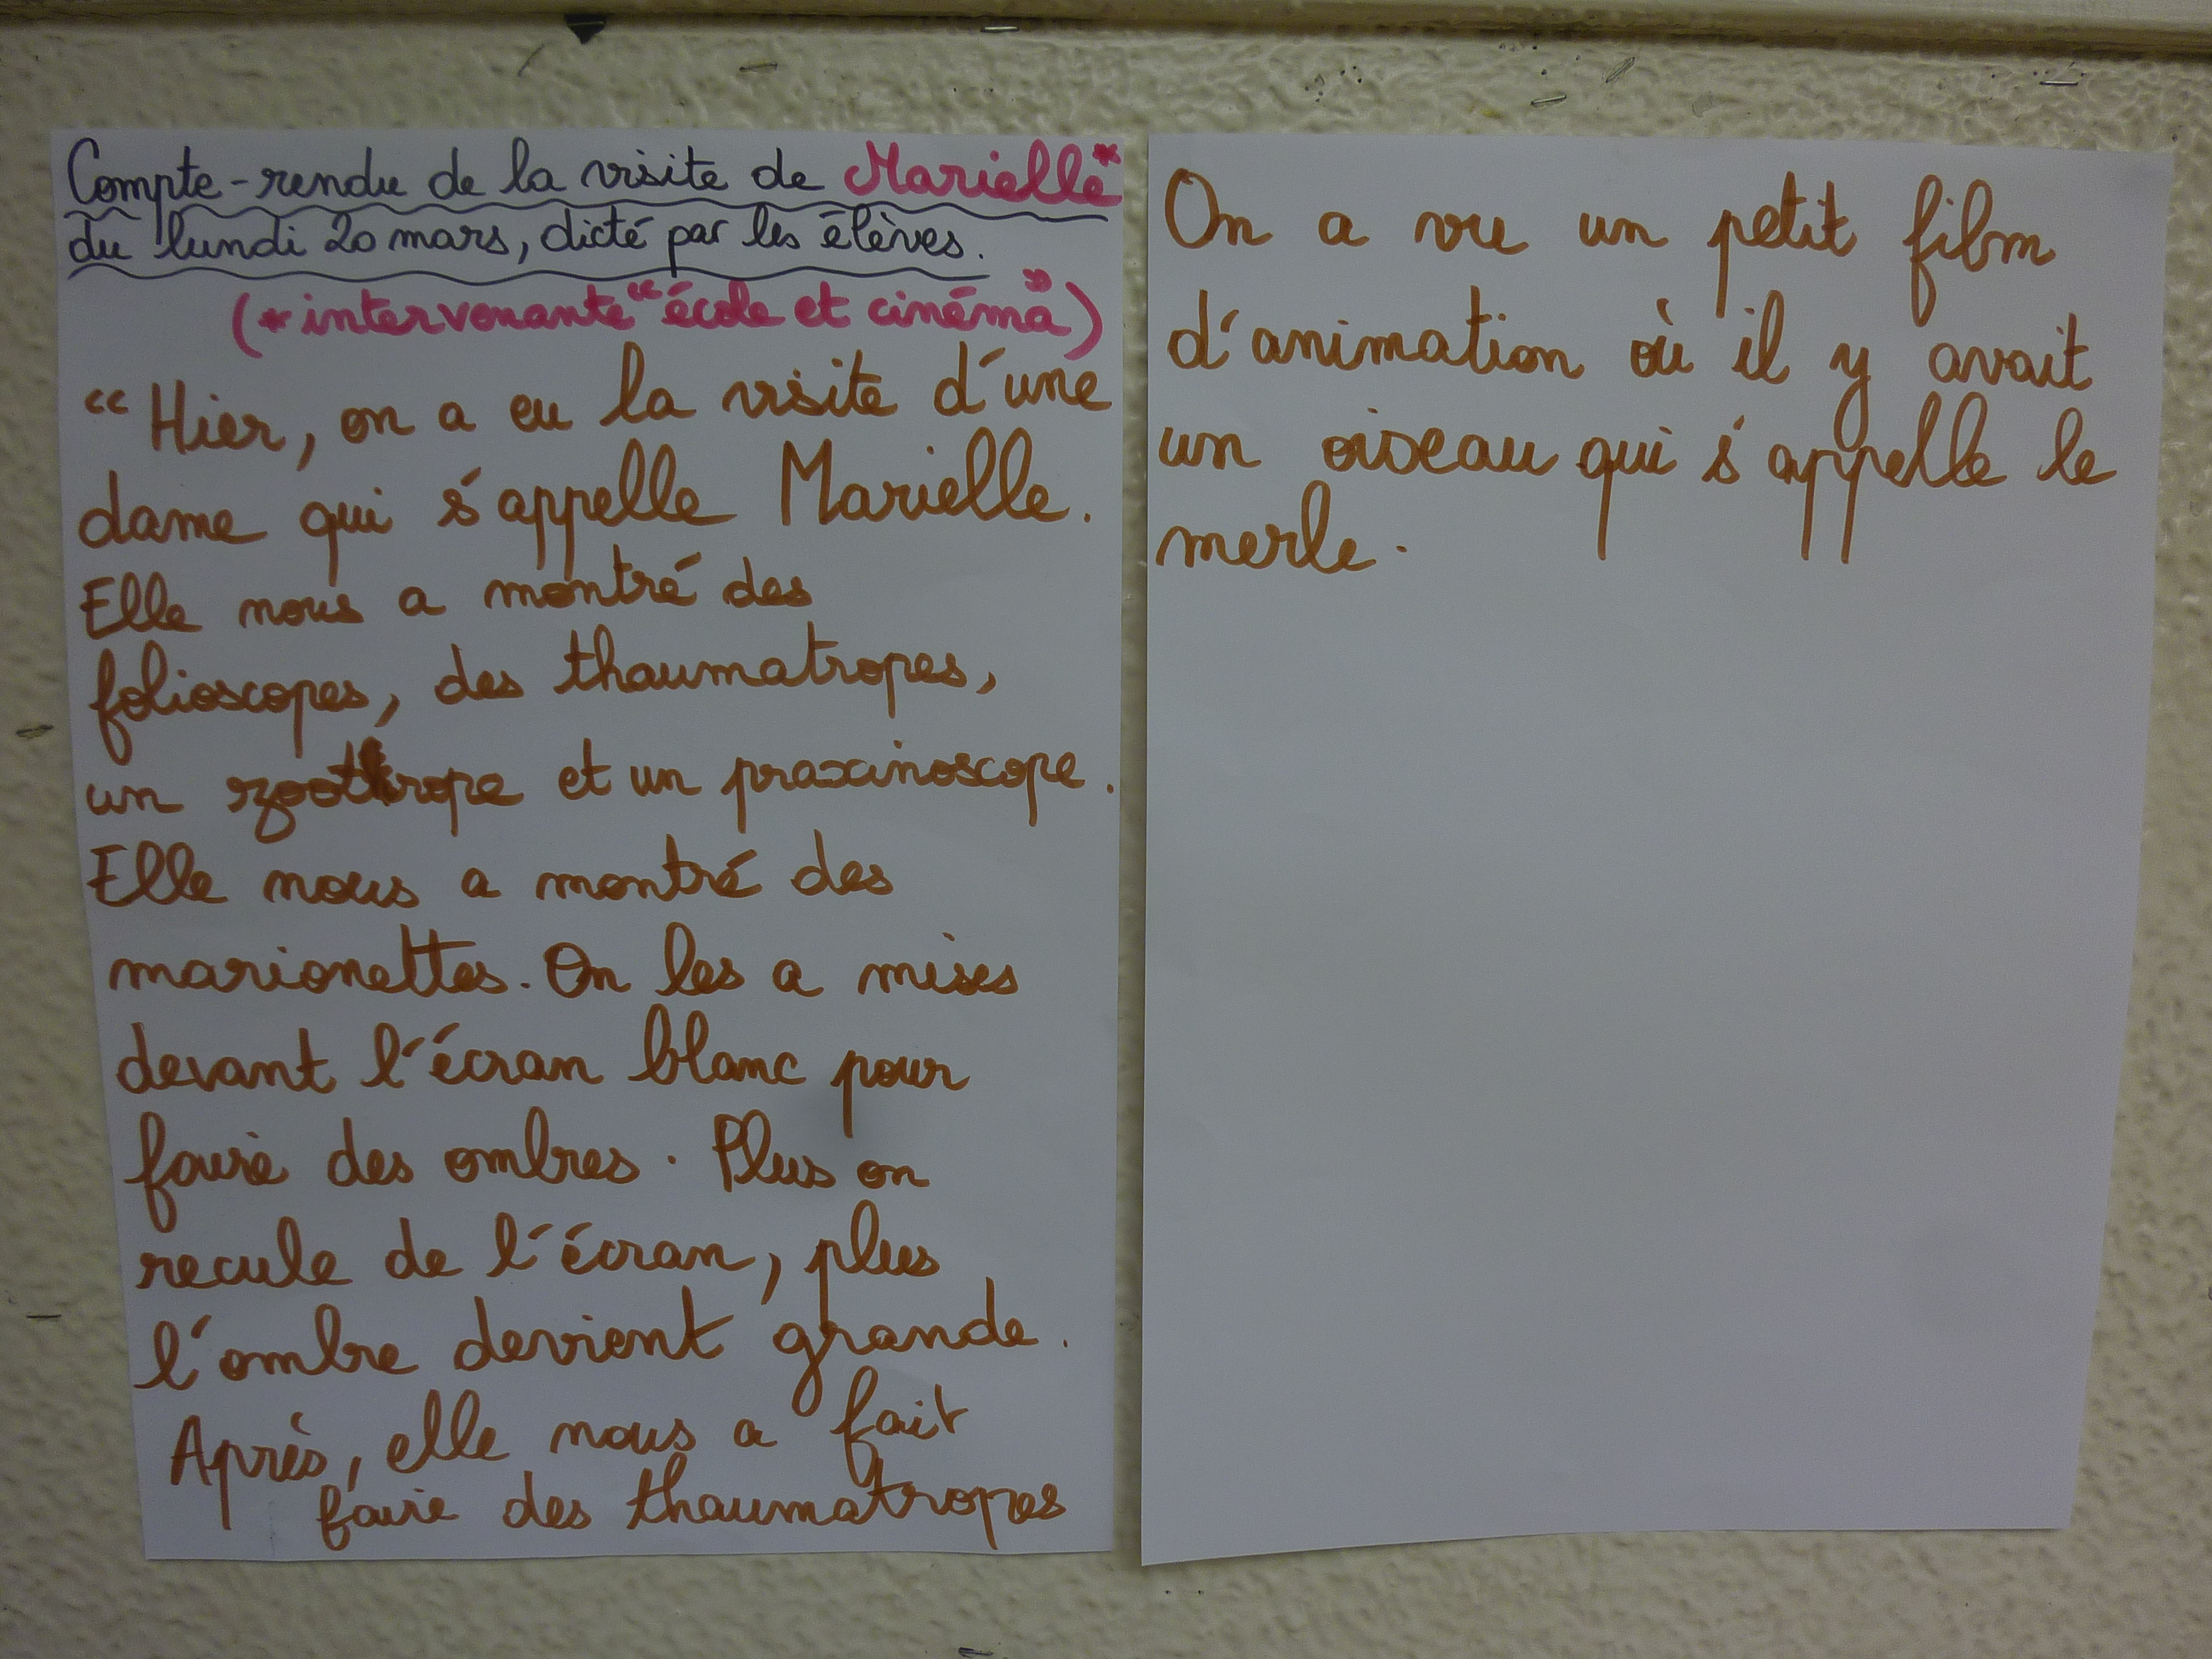 Compte-rendu de la visite de Marielle*
du lundi 20 mars, dicté par les élèves.
(* intervenante "école et cinéma")
"Hier, on a eu la visite d'une
dame qui s'appelle Marielle.
Elle nous a montré des
folioscopes, des thaumatropes,
un zootrope et un praxinoscope.
Elle nous a montré des
marionettes. On les a mises
devant l'écran blanc pour
faire des ombres. Plus on
recule de l'écran, plus
l'ombre devient grande.
Après, elle nous a fait
faire des thaumatropes
On a vu un petit film
d'animation où il y avait
un oiseau qui s'appelle le
merle.